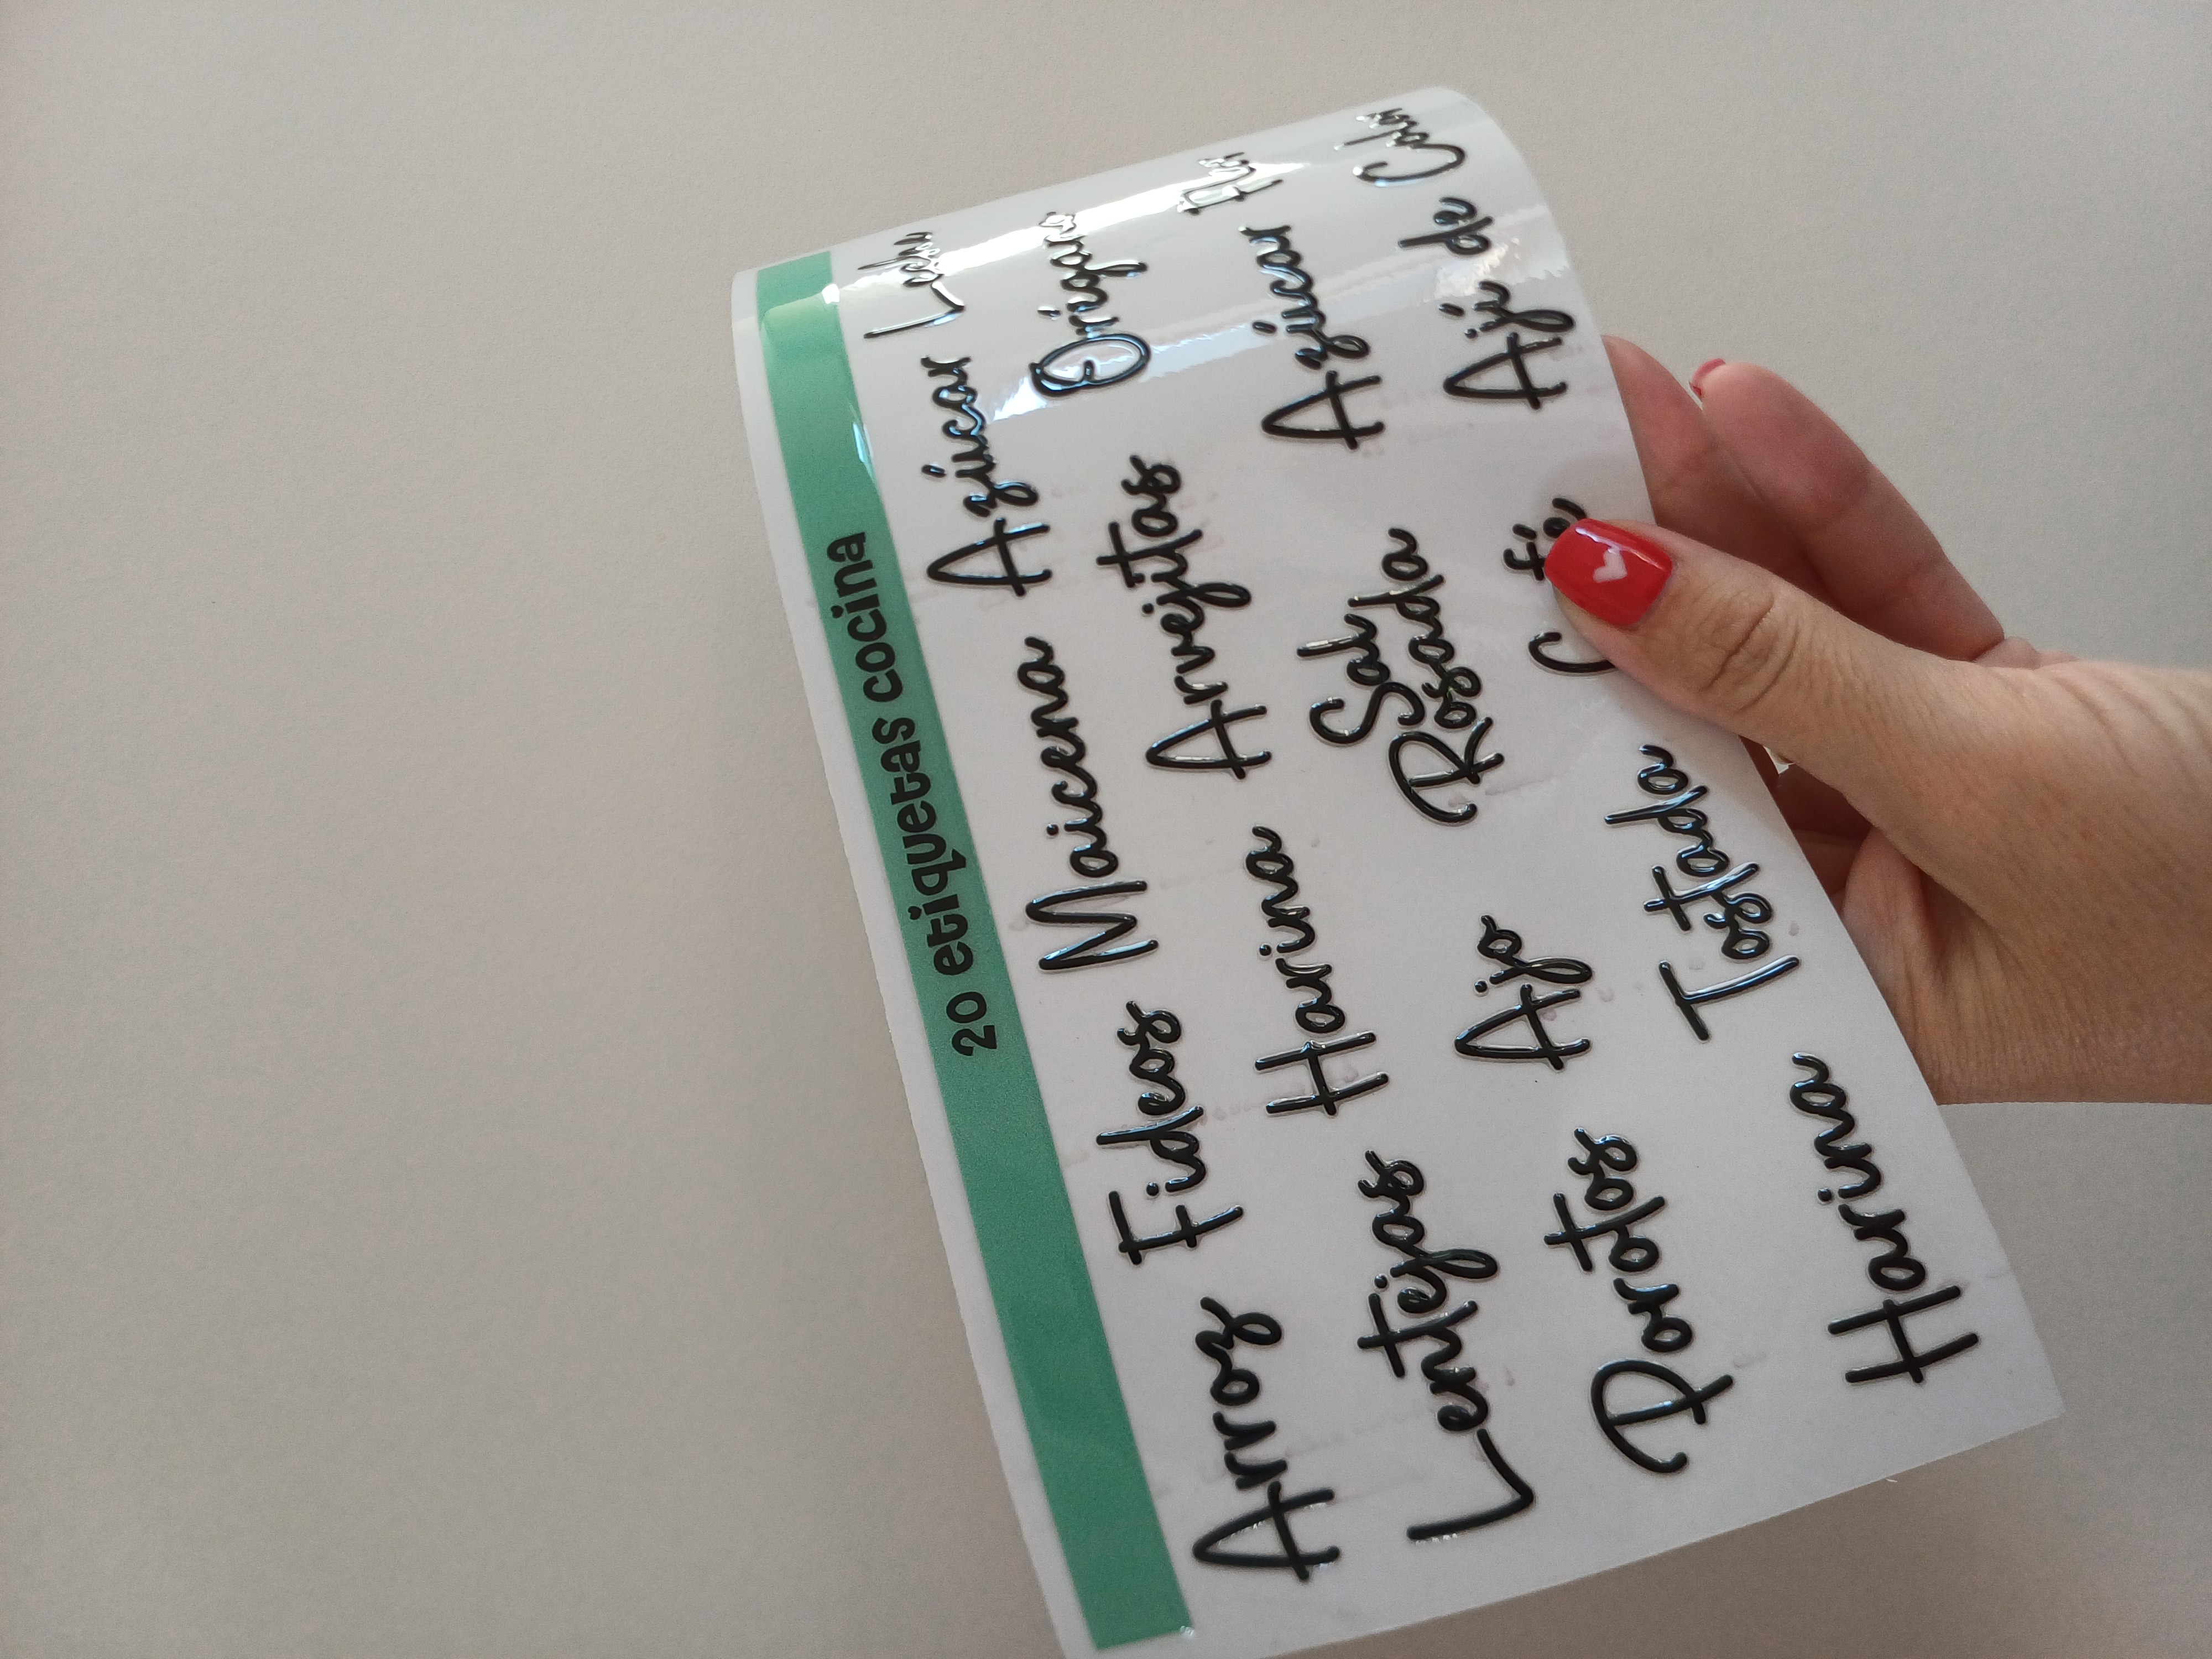 20 etiquetas cocina
Arroz Fideos Maicena Azúcar Leche
Lentejas Harina Arvejitas Orégano
Porotos Ajo Sal Azúcar Flor
Rosada
Harina Tostada Ají de Color